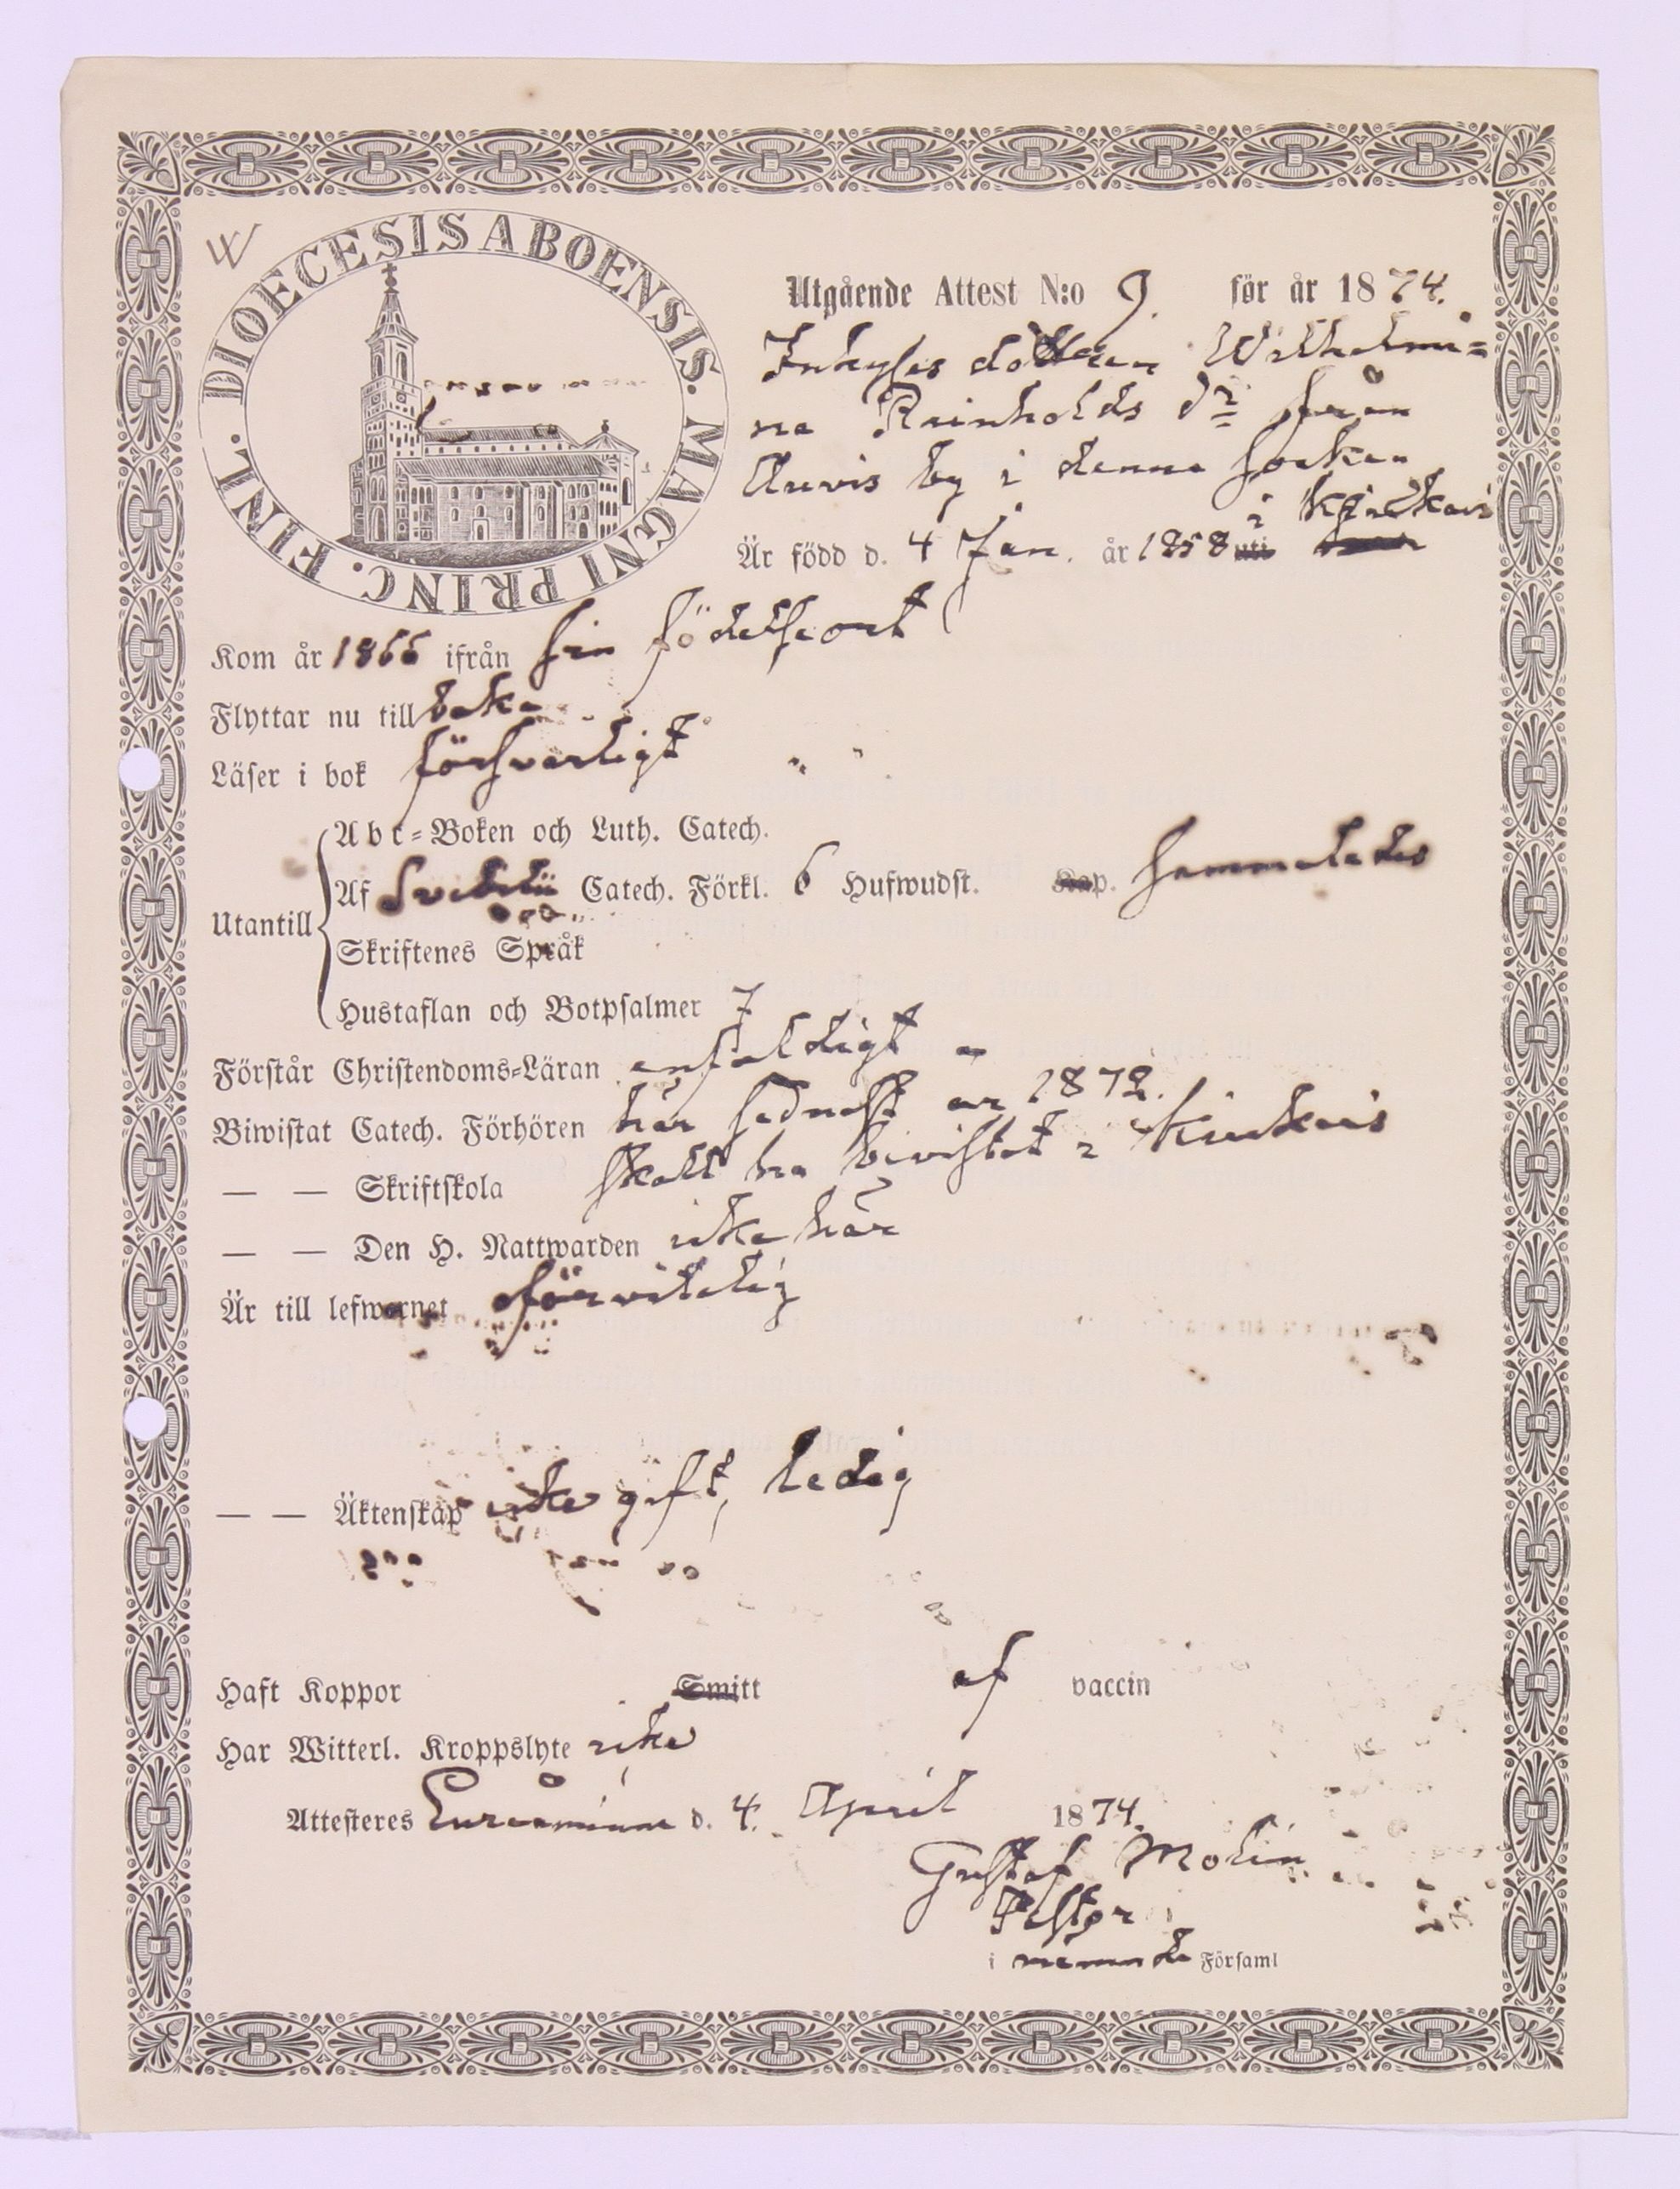 W
DIOECESIS ABOENSIS. MAGNI PRINC. FINL.
Utgående Attest N:o 9. för år 1874.
Inhyses dottren Wilhelmi=
na Reinholds dr från
Auvis by i denna socken
Är född d. 4 Jan. år 1858 uti i Kjrckais
Kom år 1866 ifrån sin födelseort
Flyttar nu till baka
Läser i bok försvarligt
Abc=Boken och Luth. Catech.
Af Svebelii Catech. Förkl. 6 Hufwudst. Kap. sammaledes
Utantill
Skriftenes Språk
Hustaflan och Botpsalmer 7
Förstår Christendoms=Läran enfaldigt
Biwistat Catech. Förhören här sednast år 1872.
— — Skriftskola skall ha bivistat i Kirckais
— — Den H. Nattwarden icke här
Är till lefwernet oförvitelig
— — Äktenskap icke gift, ledig
Haft Koppor Smitt af vaccin
Har Witterl. Kroppslyte icke
Attesteres d. 4. April 1874.
Gustaf Molin
Pastor
i nämnde Församl